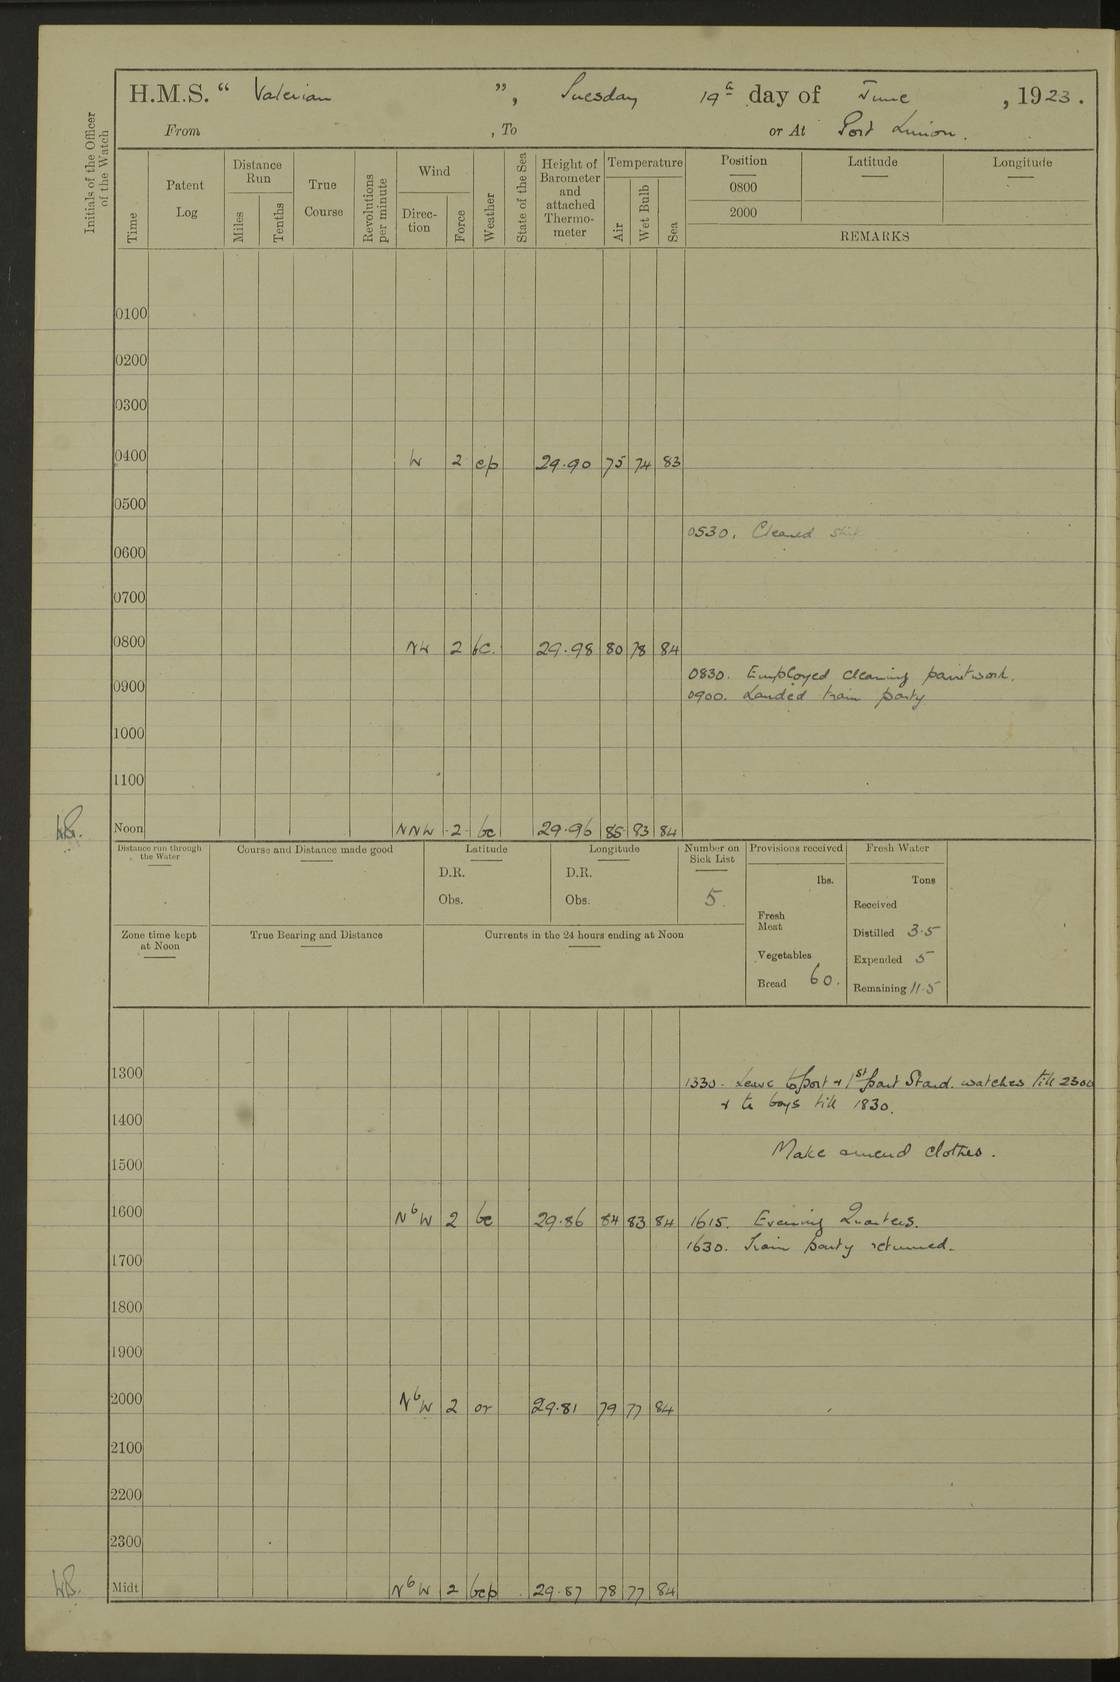 H.M.S. “ Valerian ”, Tuesday 19th day of June , 1923.
From , To or At Port Limon.
Initials of the Officer of the Watch
Time
Patent Log
Distance Run
Miles
Tenths
True Course
Revolutions per minute
Wind
Direc-tion
Force
Weather
State of the Sea
Height of Barometer and attached Thermo-meter
Temperature
Air
Wet Bulb
Sea
Position
0800
2000
Latitude
Longitude
REMARKS
0100
0200
0300
0400 W 2 cp 29.90 75 74 83
0500
0530. Cleaned ship
0600
0700
0800 NW 2 bc. 29.98 80 78 84
0830. Employed cleaning paintwork.
0900
0900. Landed train party
1000
1100
Noon NNW 2 bc 29.96 85 83 84
Distance run through the Water
Course and Distance made good
Latitude
D.R.
Obs.
Longitude
D.R.
Obs.
Number on Sick List
5.
Provisions received
lbs.
Fresh Meat
Vegetables
Bread 60.
Fresh Water
Tons
Received
Distilled 3.5
Expended 5
Remaining 11.5
Zone time kept at Noon
True Bearing and Distance
Currents in the 24 hours ending at Noon
1300
1330. Leave to port & 1st part Starbd. watches till 2300
& to boys till 1830.
1400
Make & mend clothes.
1500
1600 NbW 2 bc 29.86 84 83 84
1615. Evening Quarters.
1630. Train party returned.
1700
1800
1900
2000 NbW 2 or 29.81 79 77 84
2100
2200
2300
Midt NbW 2 bcp 29.87 78 77 84